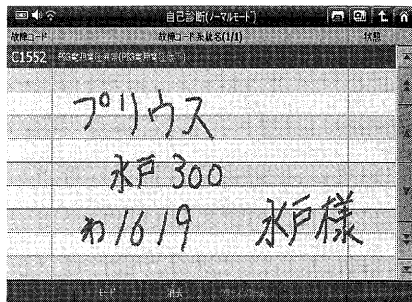 自己診断(ノーマルモード)
故障コード 故障コード系統名(1/1) 状態
C1552
プリウス
水戸 300
わ1619 水戸様
消去